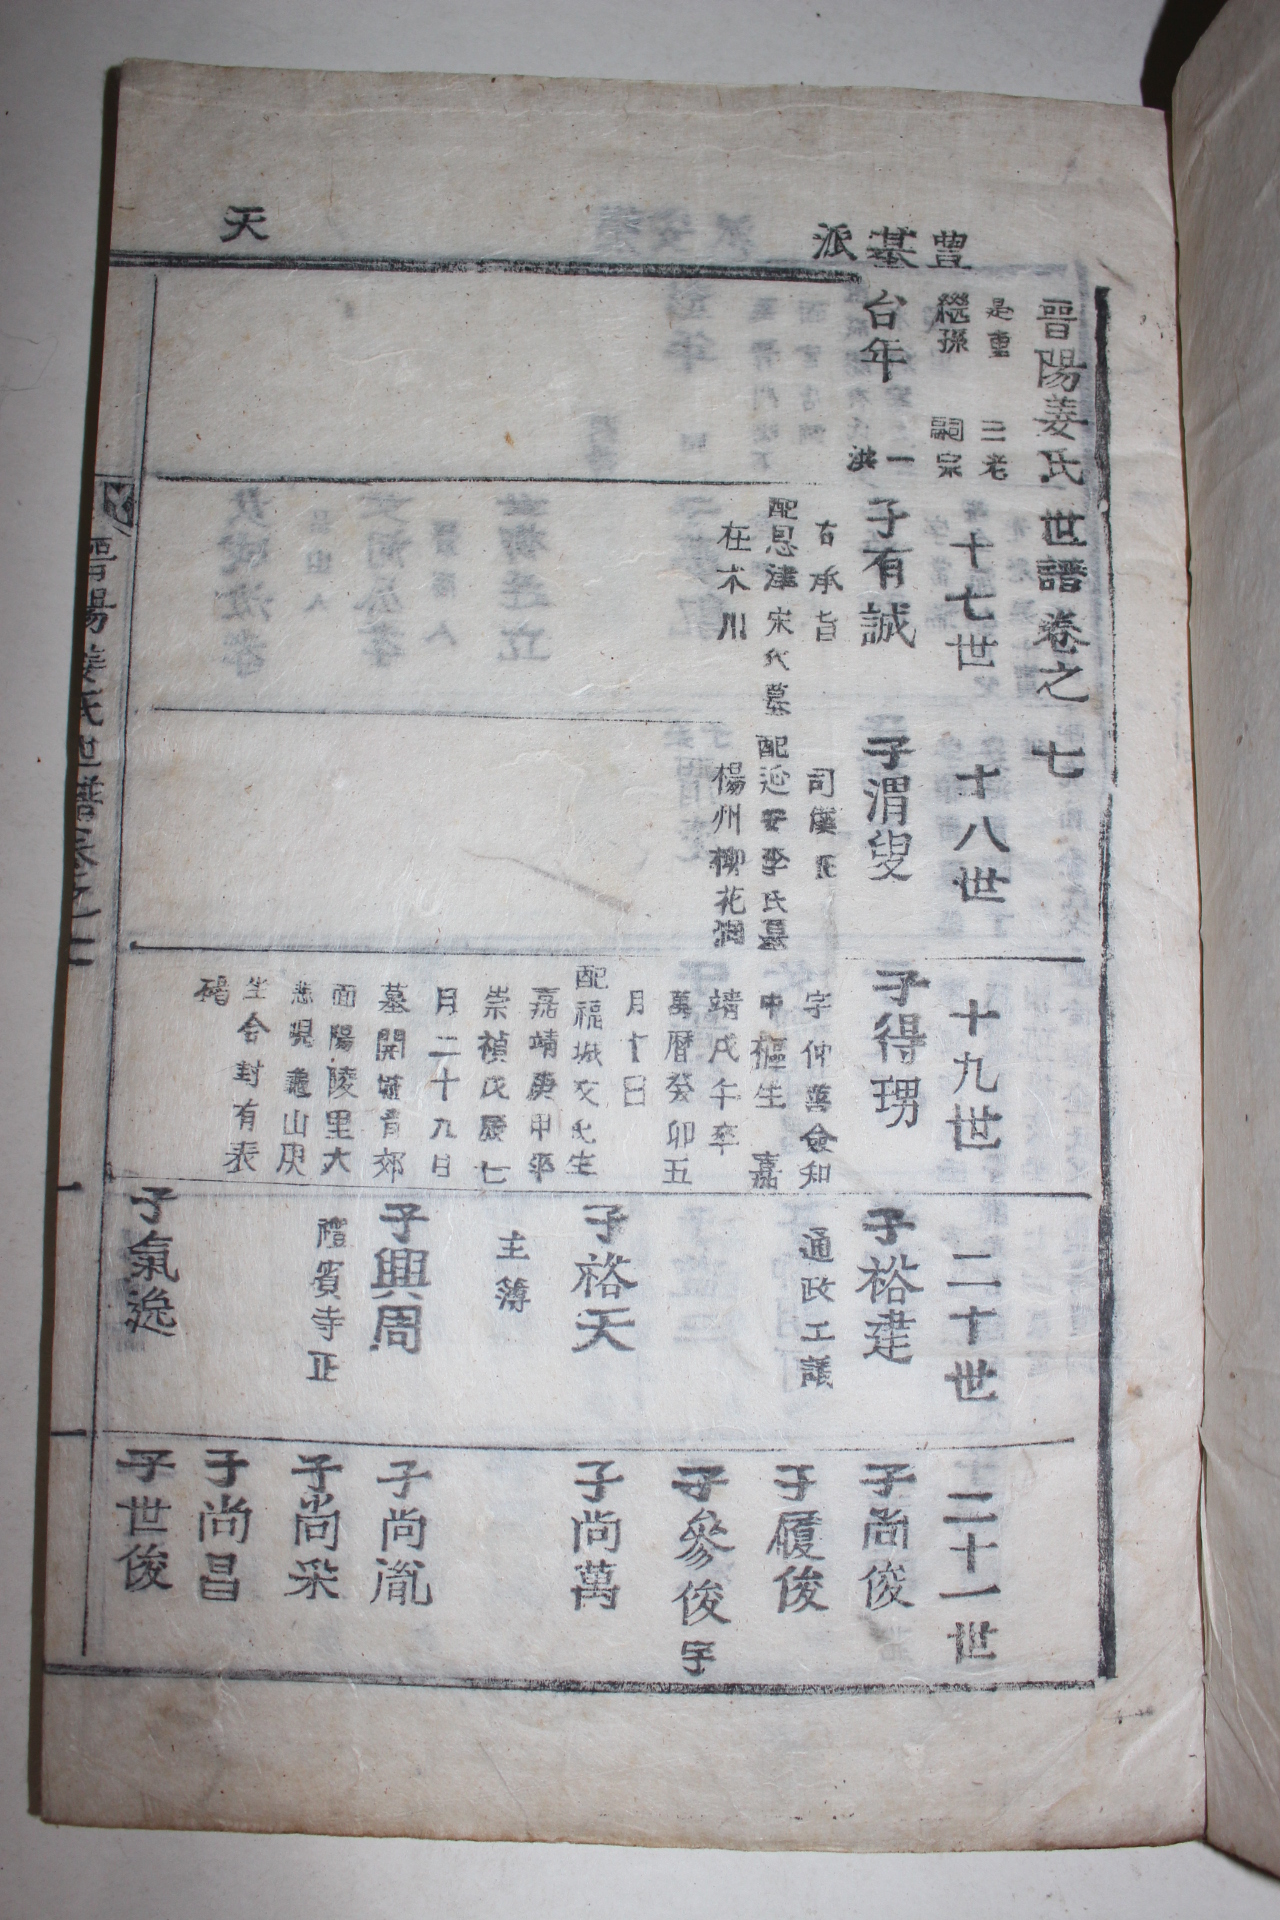 天
豊基派
晋陽姜氏世譜卷之七
是重
繼孫
三老
嗣宗
台年
一
洪
十七世
子有誠
右承旨
配恩津宋氏墓
在木川
十八世
子渭叟
司僕正
配延安李氏墓
楊州柳花洞
十九世
子得琄
字仲善僉知
中樞生 嘉
靖戊午卒
萬曆癸卯五
月十日
配福城文氏生
嘉靖庚申卒
崇禎氏辰七
月二十九日
墓開城青郊
面陽陵里大
悲現龜山庚
坐合封有表
碣
二十世
子裕建
通政工議
子裕天
主簿
子興周
禮賓寺正
子氣逸
二十一世
子尚俊
子履俊
子參俊 字
子尚萬
子尚胤
子尚采
子尚昌
子世俊
晋陽姜氏世譜卷之七
一